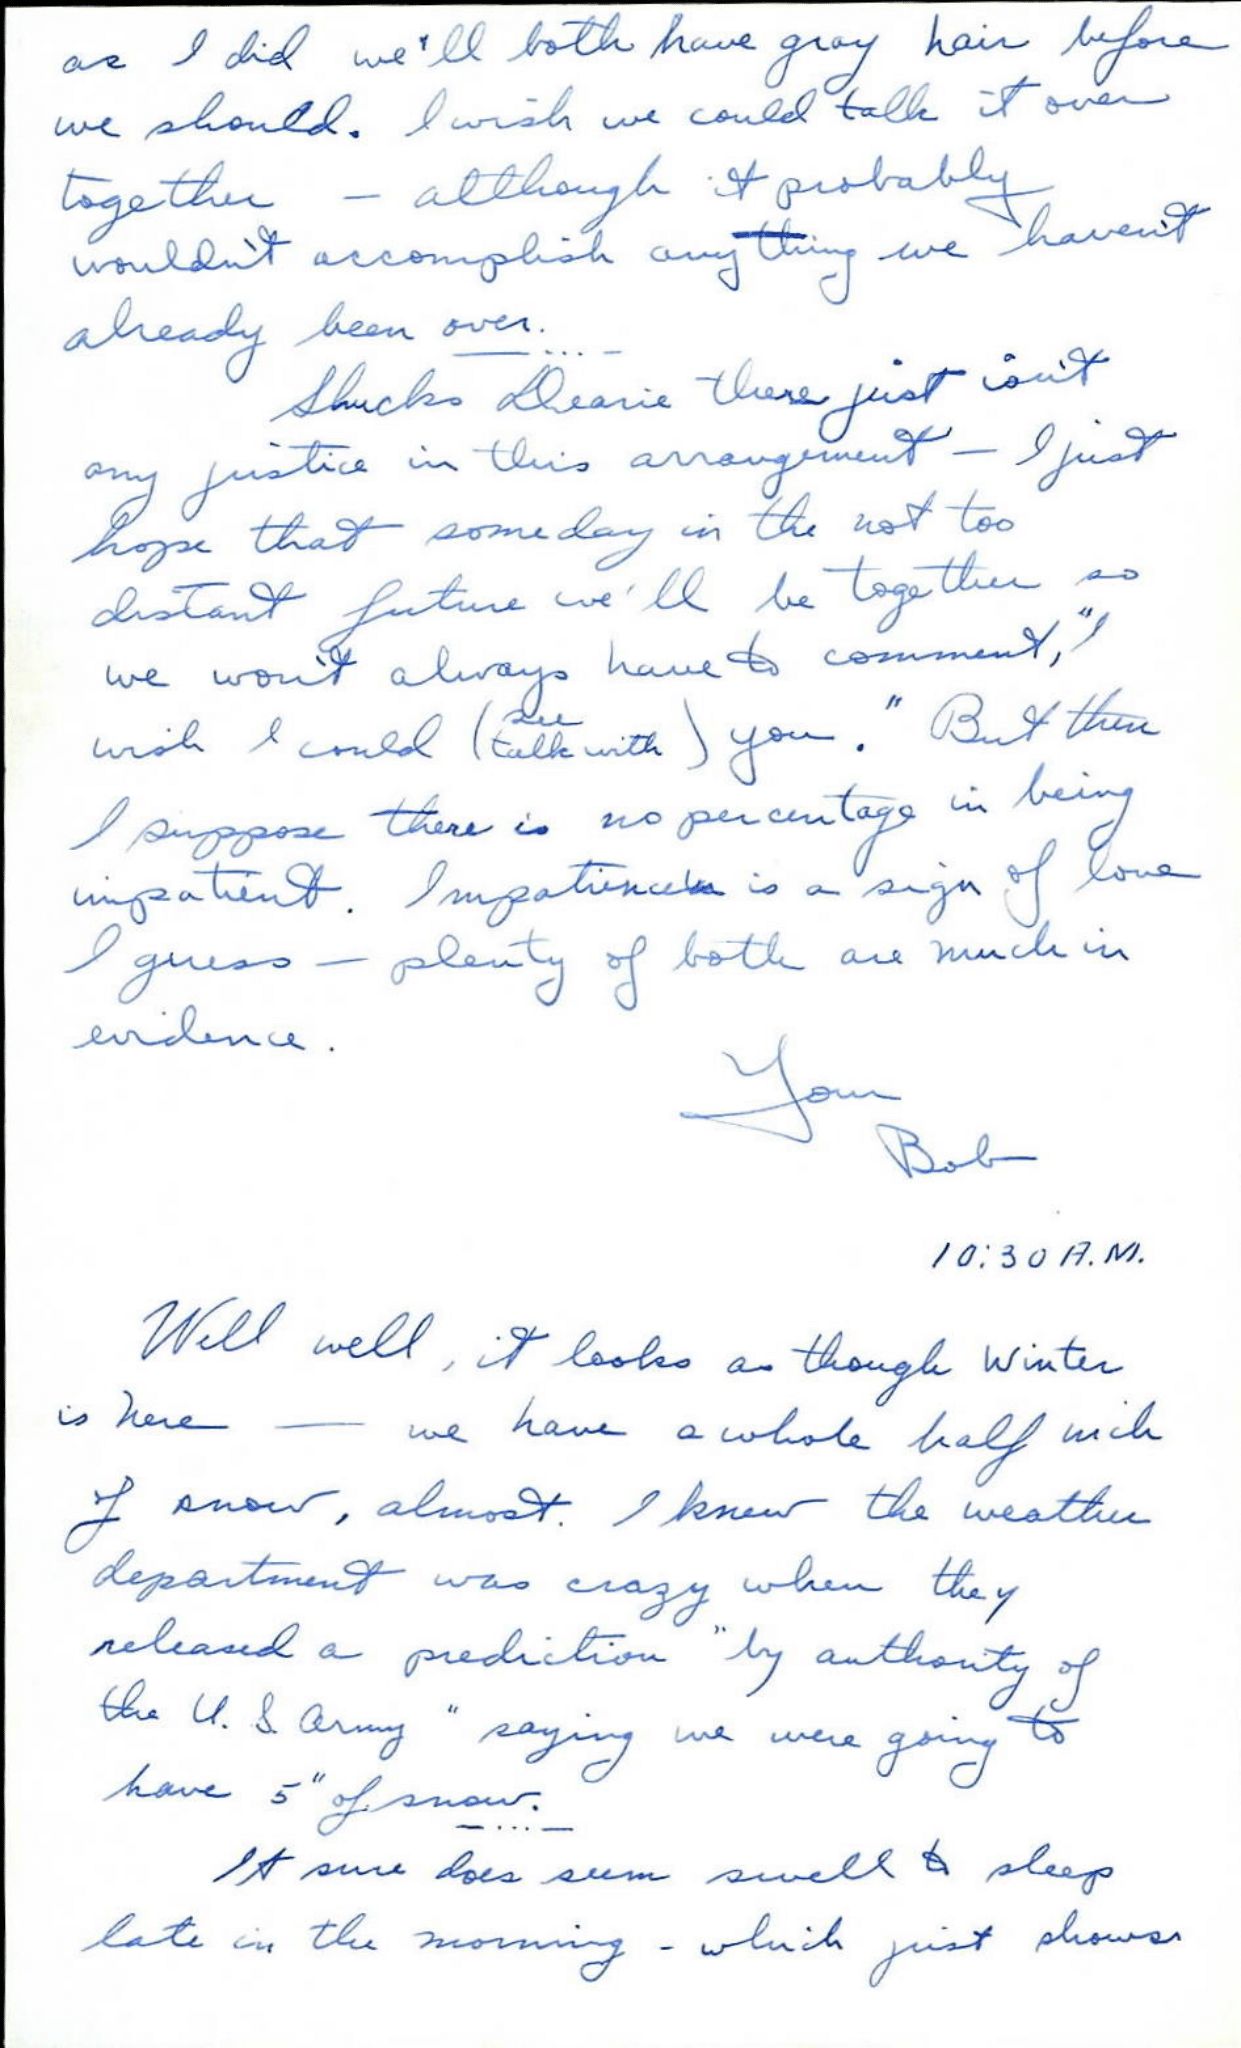 as I did we'll both have gray hair before
we should. I wish we could talk it over
together — although it probably
wouldn't accomplish anything we haven't
already been over.
—...—
Shucks Dearie there just isn't
any justice in this arrangement — I just
hope that someday in the not too
distant future we'll be together so
we won't always have to comment, "I
wish I could (see
talk with) you." But then
I suppose there is no percentage in being
impatient. Impatience is a sign of love
I guess — plenty of both are much in
evidence.
Your
Bob
10:30 A.M.
Well well, it looks as though Winter
is here — we have a whole half inch
of snow, almost. I knew the weather
department was crazy when they
released a prediction "by authority of
the U. S. Army" saying we were going to
have 5" of snow.
—...—
It sure does seem swell to sleep
late in the morning - which just shows